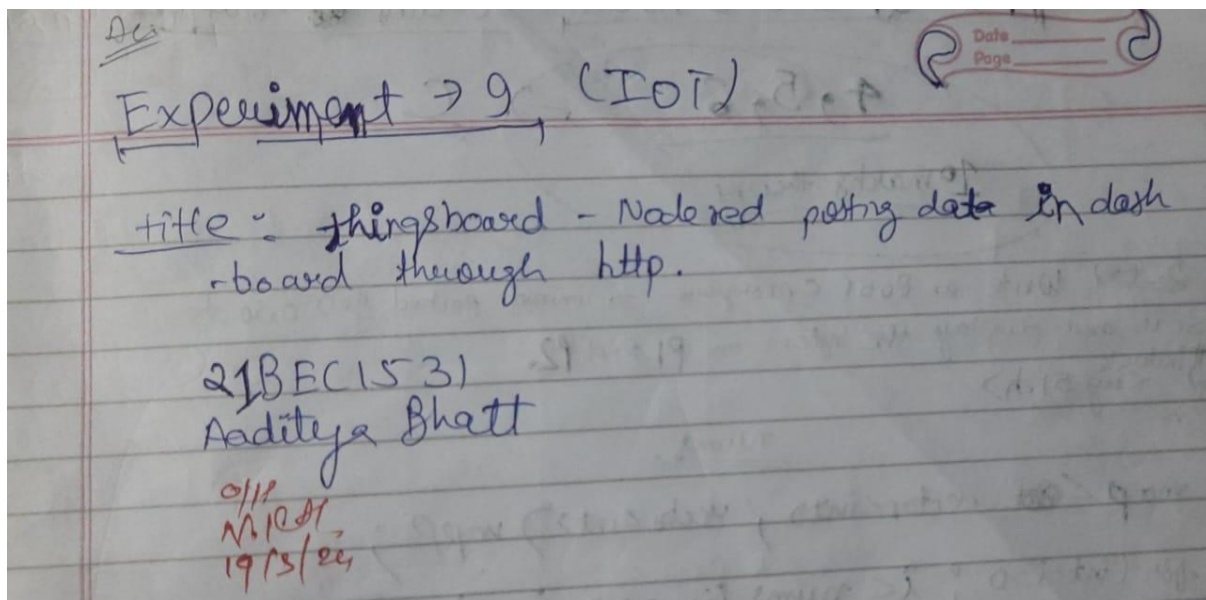 Date
Page
Experiment → 9 (IOT)
title: thingsboard - Node red posting data in dash
-board through http.
21BEC1531
Aaditya Bhatt
O/P
19/3/24